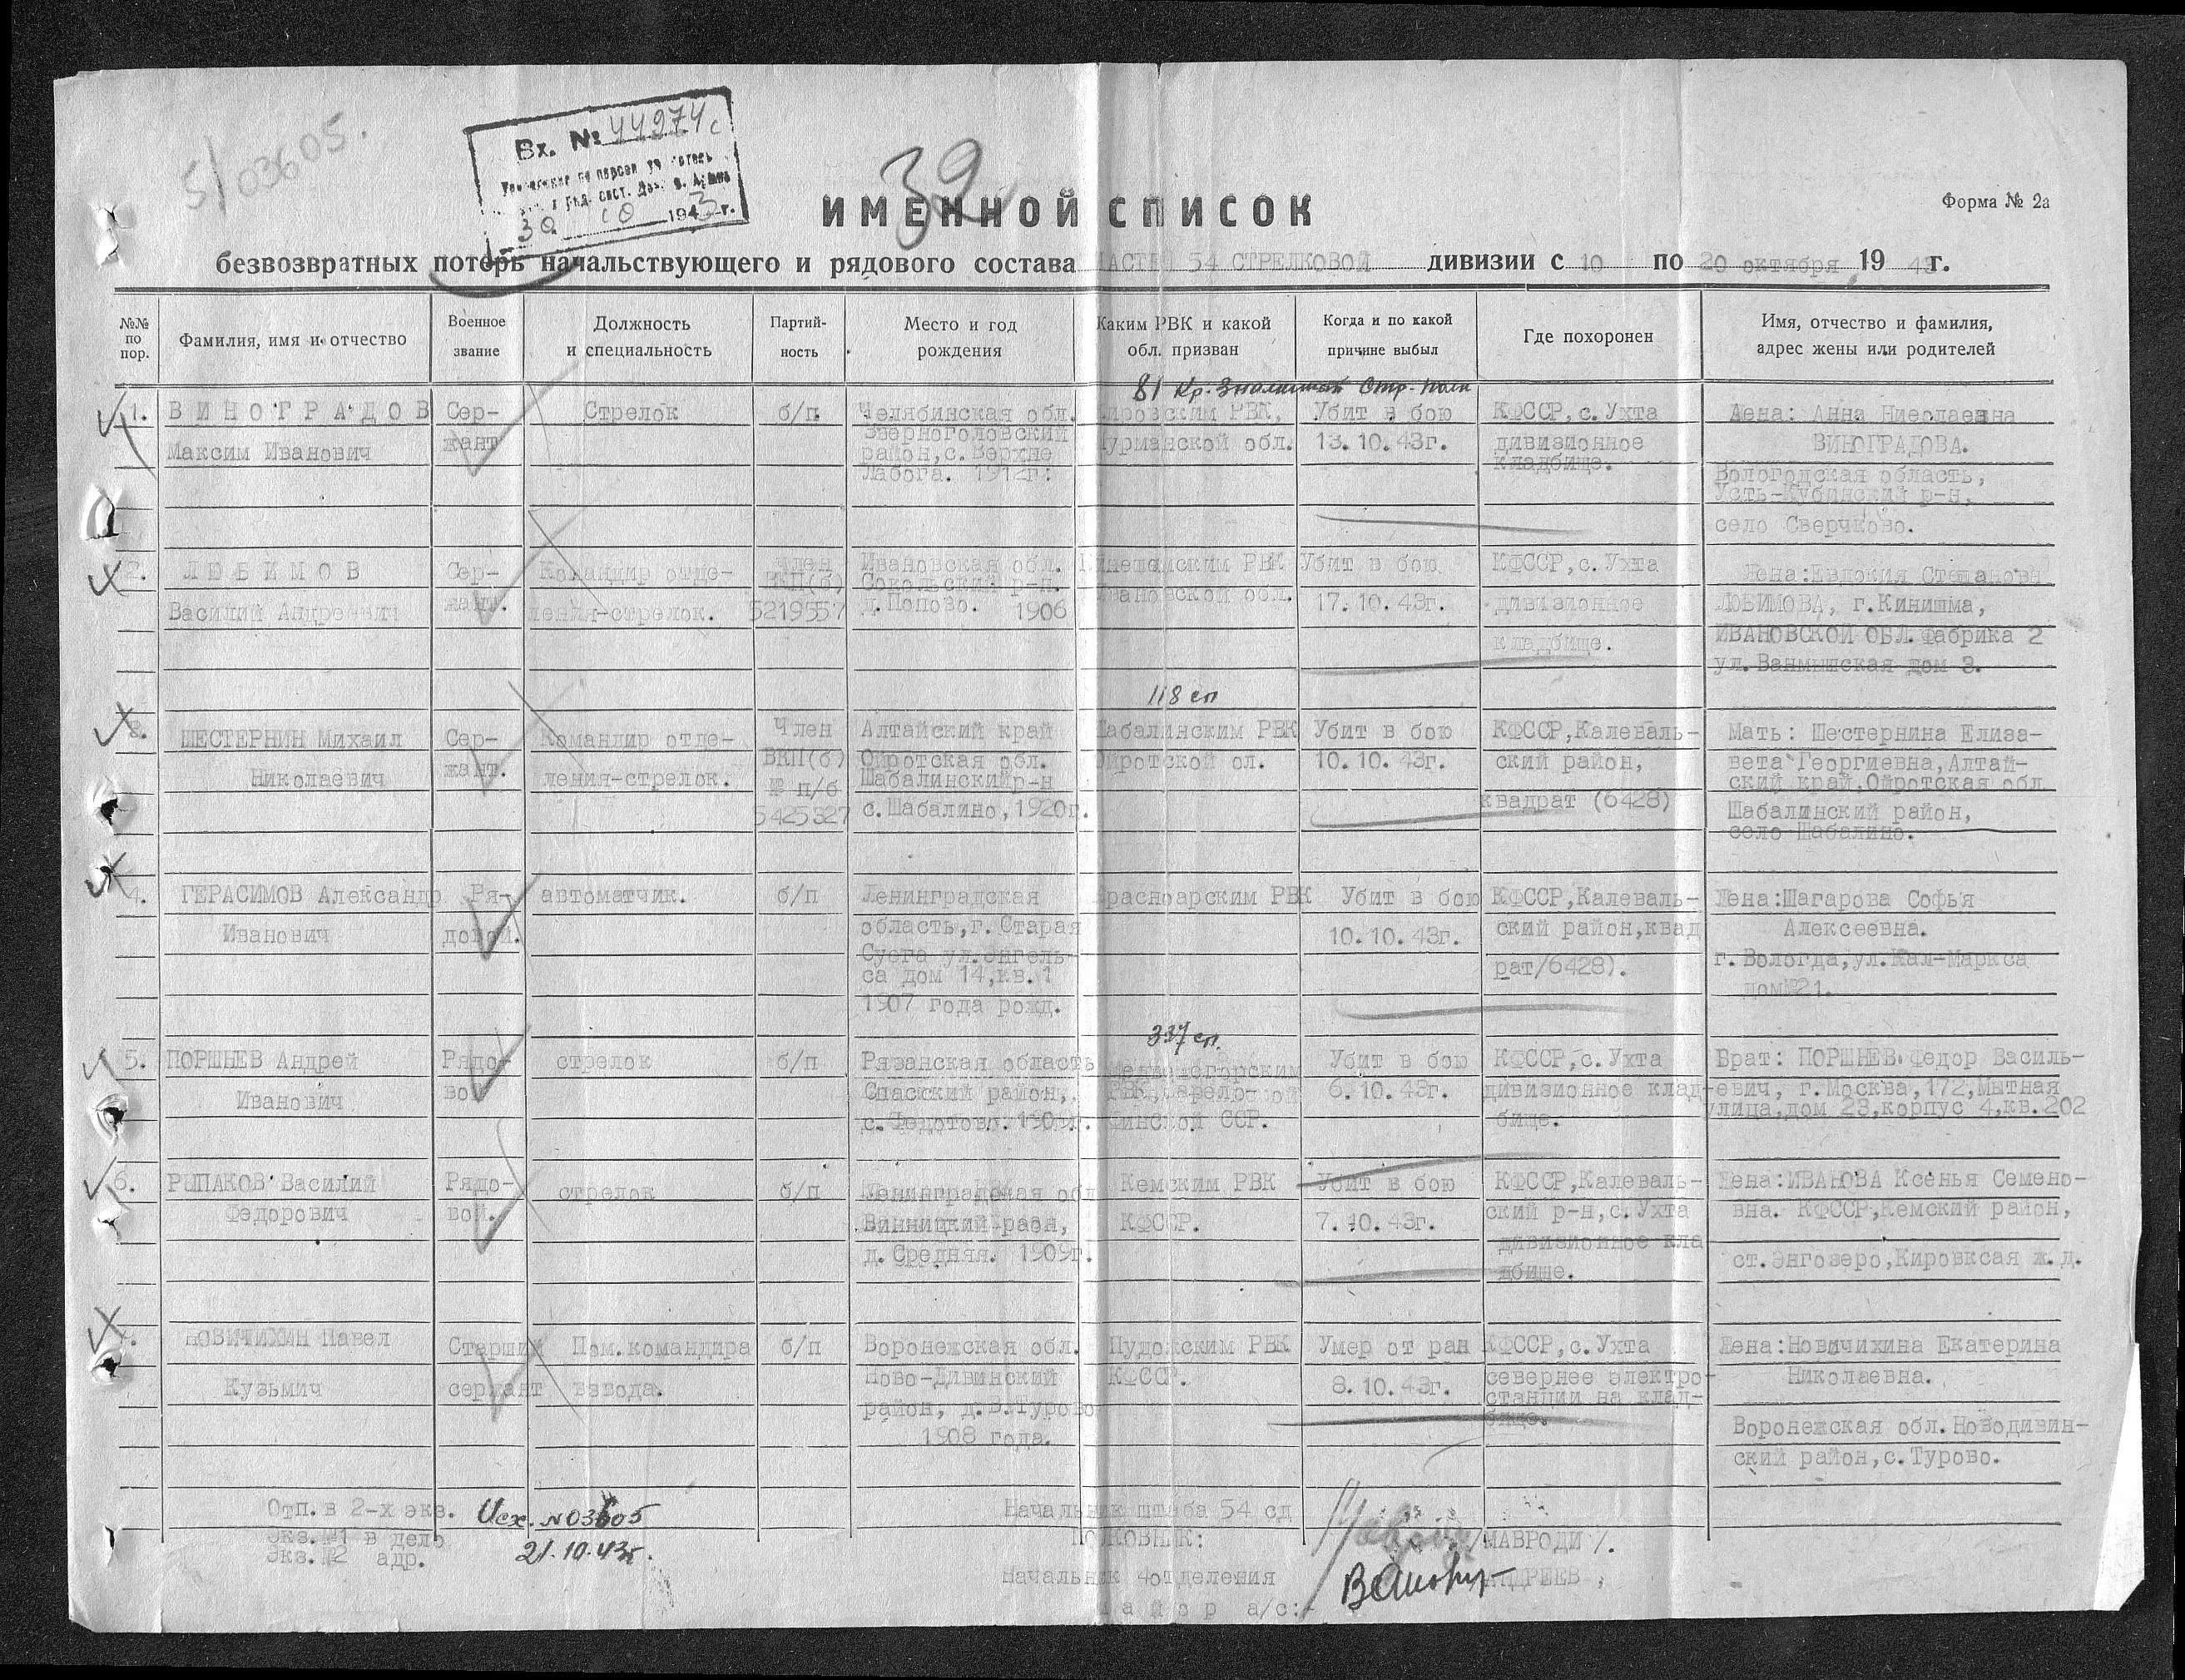 5/03605.
Вх. № 44974с
30 10 1943 г.
39
ИМЕННОЙ СПИСОК
Форма № 2а
безвозвратных потерь начальствующего и рядового состава ЧАСТЕЙ 54 СТРЕЛКОВОЙ дивизии с 10 по 20 октября 1943 г.
№№ по пор.
Фамилия, имя и отчество
Военное звание
Должность и специальность
Партий-ность
Место и год рождения
Каким РВК и какой обл. призван
Когда и по какой причине выбыл
Где похоронен
Имя, отчество и фамилия, адрес жены или родителей
81 Кр. Стр. полк
1. ВИНОГРАДОВ Сер- Стрелок б/п Челябинская обл. Кировским РВК, Убит в бою КФССР, с. Ухта Анна
Максим Иванович жант Звериноголовский Мурманской обл. 13.10.43г. дивизионное ВИНОГРАДОВА.
район, с. Верхне кладбище. Вологодская область,
1912г. Усть-Кубинский р-н,
село Сверчково.
2. ЛЮБИМОВ Сер- Командир отде- Член Ивановская обл. Кинешемским РВК Убит в бою КФССР, с. Ухта Жена: Евдокия Степановн
Василий Андреевич жант. ления-стрелок. ВКП(б) Сокольский р-н. Ивановской обл. 17.10.43г. дивизионное ЛЮБИМОВА, г. Кинишма,
5219557 д. Попово. 1906 кладбище. ИВАНОВСКОЙ ОБЛ. Фабрика 2
ул. дом 3.
118 сп
3. ШЕСТЕРНИН Михаил Сер- Командир отде- Член Алтайский край Шабалинским РВК Убит в бою КФССР, Калеваль- Мать: Шестернина Елиза-
Николаевич жант. ления-стрелок. ВКП(б) Ойротская обл. Ойротской ол. 10.10.43г. ский район, вета Георгиевна, Алтай-
№ п/б Шабалинскийр-н квадрат (6428) ский край, Ойротская обл
5425327 с. Шабалино, 1920г. Шабалинский район,
село Шабалино.
4. ГЕРАСИМОВ Александр Ря- автоматчик. б/п Ленинградская Красноарским РВК Убит в бою КФССР, Калеваль- Жена: Шагарова Софья
Иванович довой. область, г. Старая 10.10.43г. ский район, квад Алексеевна.
ул. Энгель- рат/6428). г. Вологда, ул. Кал-Маркса
са дом 14, кв. 1 дом№21.
1907 года рожд.
337 сп.
5. ПОРШНЕВ Андрей Рядо- стрелок б/п Рязанская область Медвежегорским Убит в бою КФССР, с. Ухта Брат: ПОРШНЕВ Федор Василь-
Иванович вой Спасский район, РВК, 6.10.43г. дивизионное клад- евич, г. Москва, 172, Мытная
с. Федотово. Финской ССР. бище. улица, дом 23, корпус 4, кв. 202
6. РЫПАКОВ Василий Рядо- стрелок б/п Ленинградская обл Кемским РВК Убит в бою КФССР, Калеваль- Жена: ИВАНОВА Ксенья Семено-
Федорович вой. Винницкий раон, КФССР. 7.10.43г. ский р-н, с. Ухта вна. КФССР, Кемский район,
д. Средняя. 1909г. дивизионное кла ст. Энгозеро, Кировксая ж.д.
дбище.
7. НОВИЧИХИН Павел Старший Пом. командира б/п Воронежская обл. Пудожским РВК Умер от ран КФССР, с. Ухта Жена: Новичихина Екатерина
Кузьмич сержант взвода. Ново-Дивинский КФССР. 8.10.43г. севернее электро- Николаевна.
район, д. В. Турово станции на клад- Воронежская обл. Новодивин-
1908 года. бище. ский район, с. Турово.
Отп. в 2-х экз. Исх. №03605 Начальник штаба 54 сд
Экз. №1 в дело ПОЛКОВНИК: /МАВРОДИ/.
Экз. №2 адр. 21.10.43г.
Начальник 4отделения АНДРЕЕВ
майор а/с:-